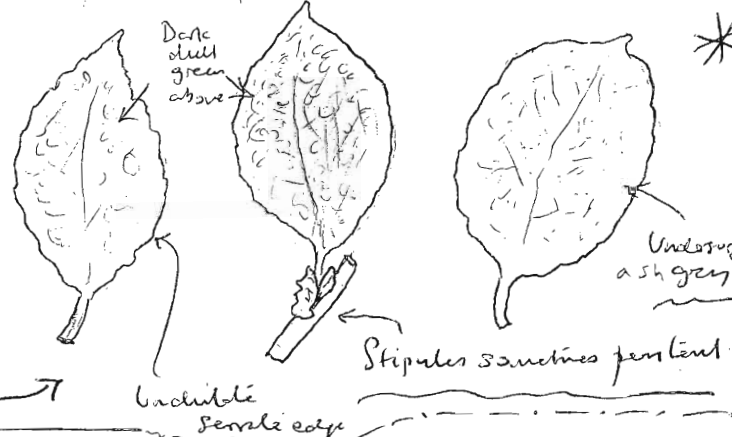 Dark
dull
green
above
ash grey
Stipules sometimes persistent
Undulate
serrate edge